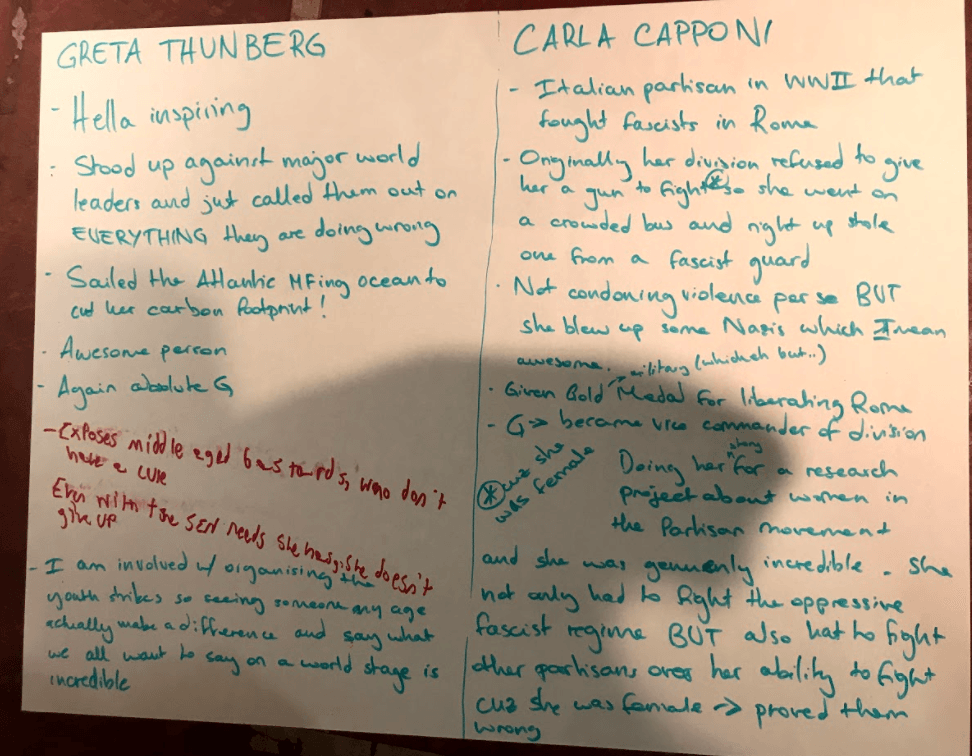 GRETA THUNBERG
- Hella inspiring
- Stood up against major world
leaders and just called them out on
EVERYTHING they are doing wrong
- Sailed the Atlantic MFing ocean to
cut her carbon footprint!
- Awesome person
- Again absolute G
- Exposes middle aged bastards, who don't
have a
Even with the SEN needs she has, she doesn't
give up
- I am involved w/ organising the
youth strikes so seeing someone my age
actually make a difference and say what
we all want to say on a world stage is
incredible
CARLA CAPPONI
- Italian partisan in WWII that
fought fascists in Rome
- Originally her division refused to give
her a gun to fight* so she went on
a crowded bus and right up stole
one from a fascist guard
- Not condoning violence per se BUT
she blew up some Nazis which I mean
awesome.
military (which eh but..)
- Given Gold Medal for liberating Rome
- G → became vice commander of division
* cuz she
was female
Doing her for a research
project about women in
the Partisan movement
and she was genuenly incredible. She
not only had to fight the oppressive
fascist regime BUT also hat to fight
other partisans over her ability to fight
cuz she was female → proved them
wrong